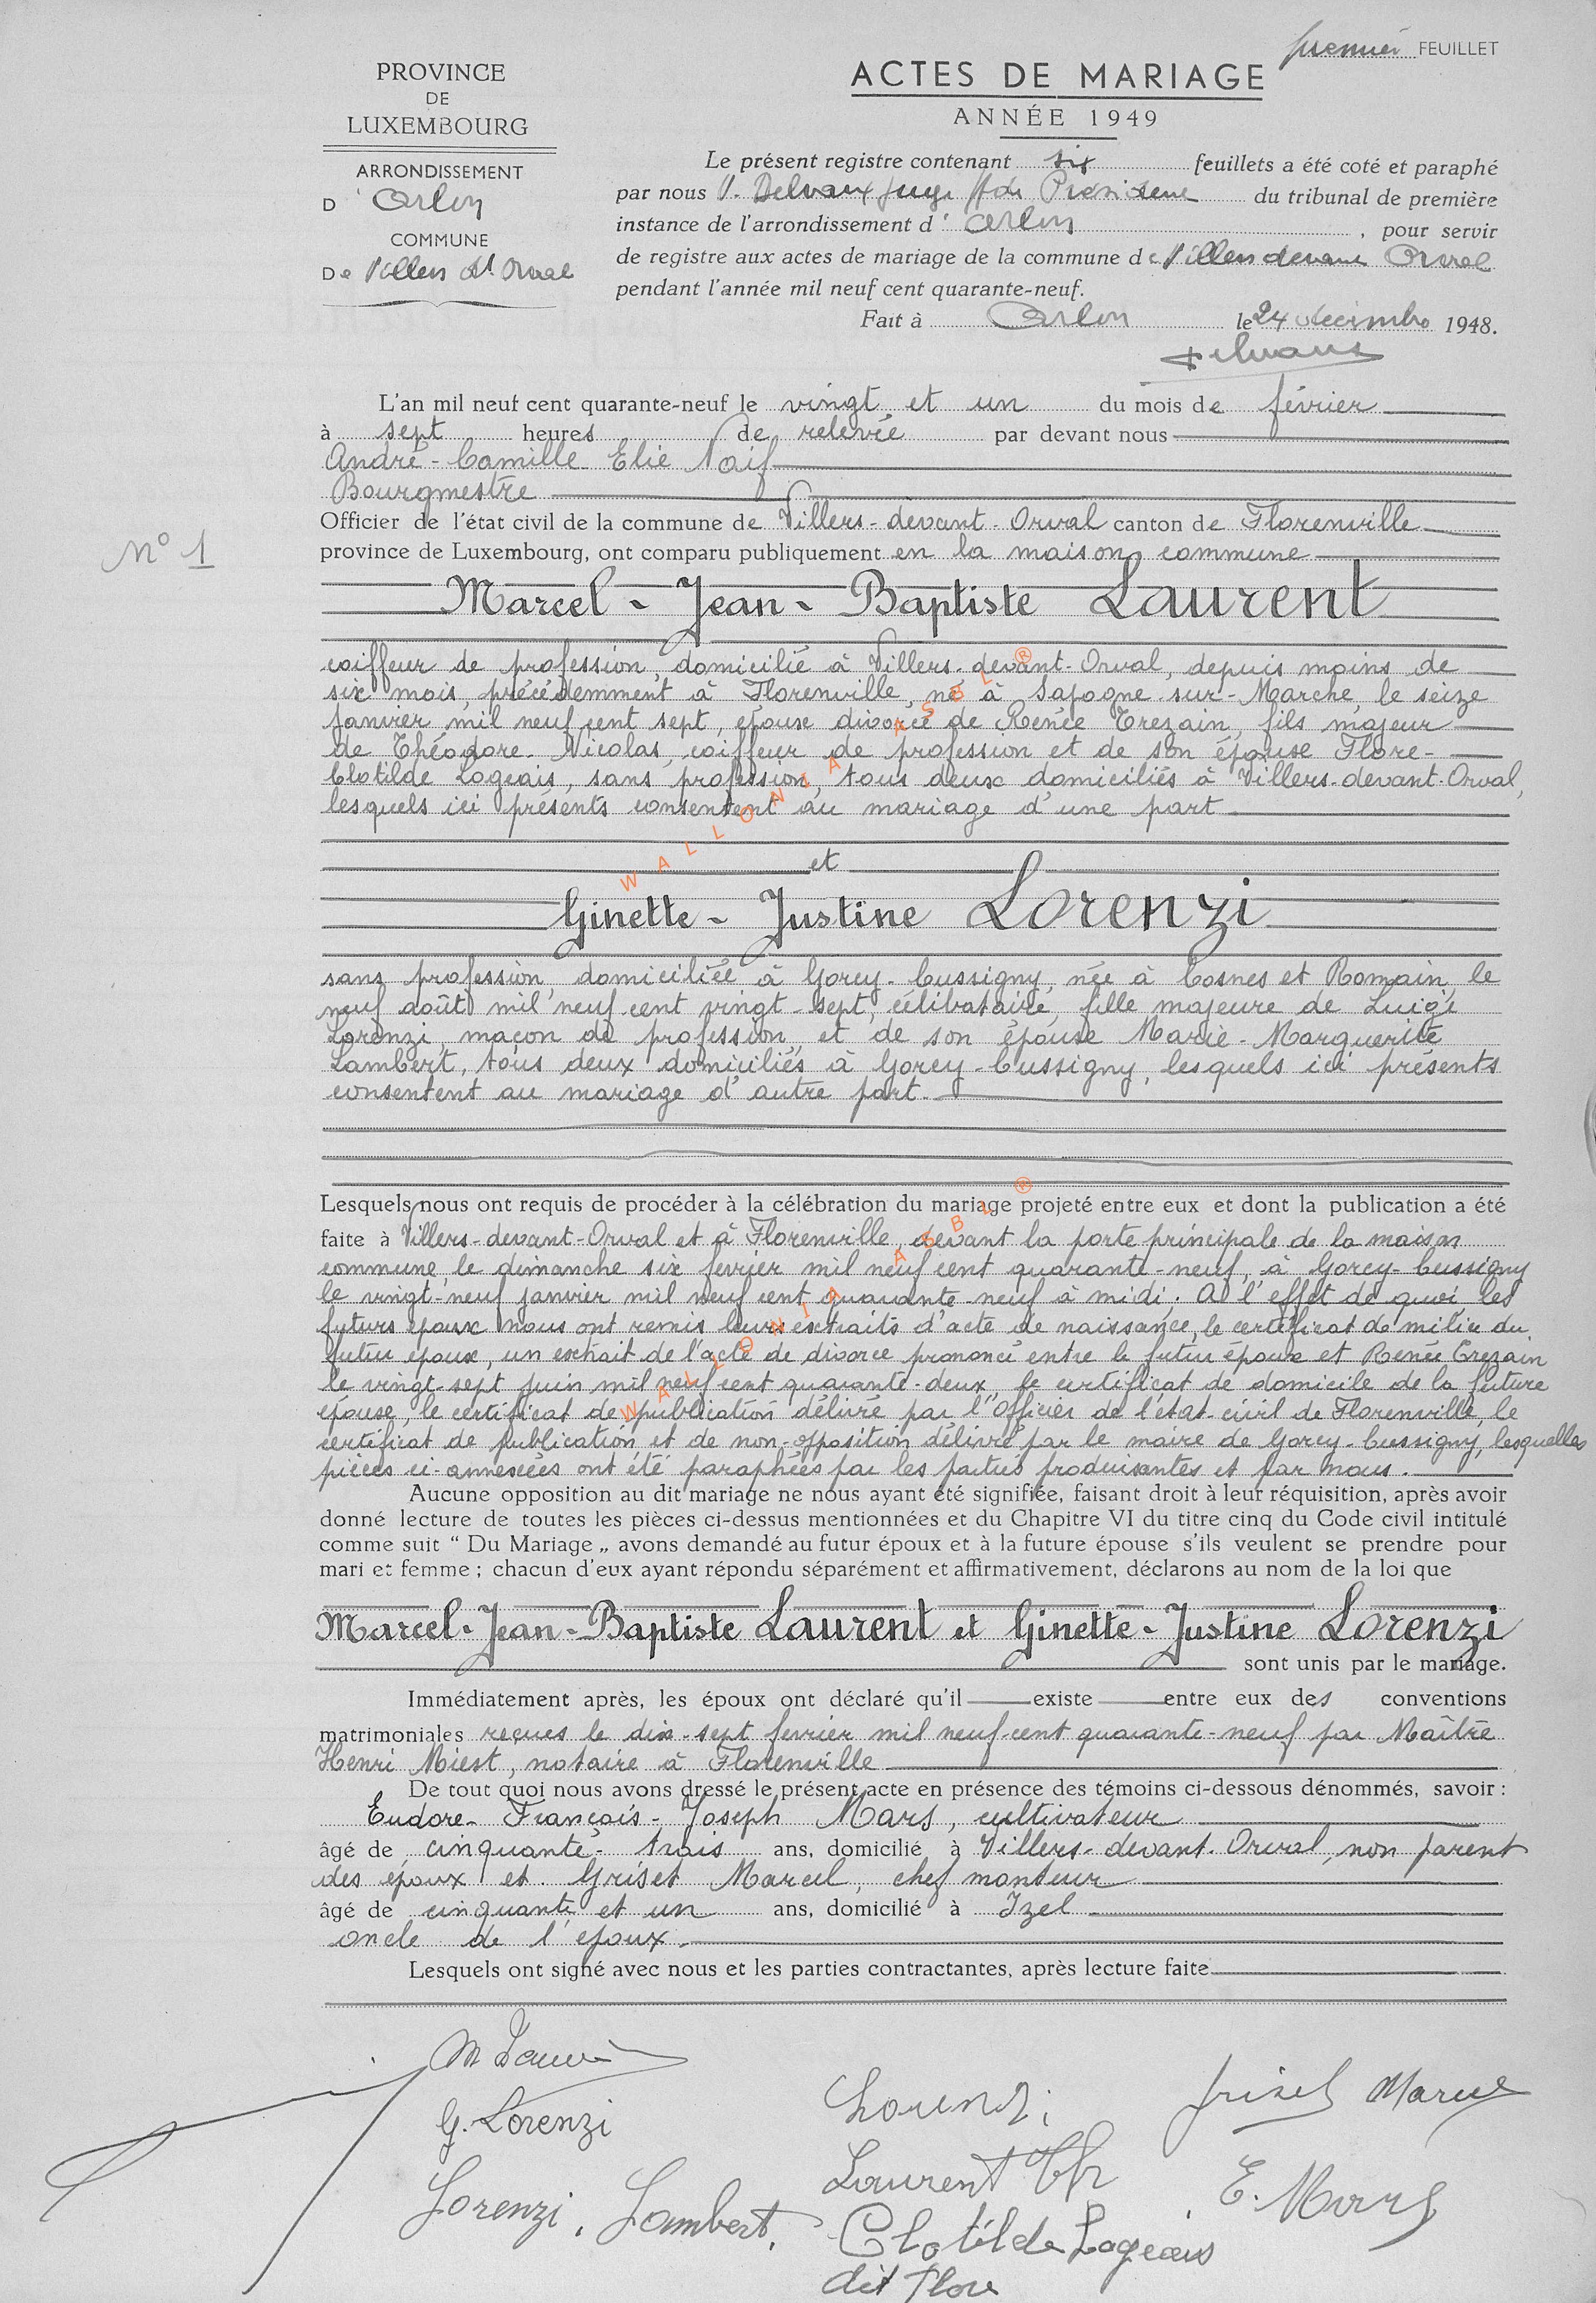 premier FEUILLET
PROVINCE
DE
LUXEMBOURG
ARRONDISSEMENT
D' Arlon
COMMUNE
De Villers dt Orval
ACTES DE MARIAGE
ANNÉE 1949
Le présent registre contenant six feuillets a été coté et paraphé
par nous Delvaux juge Président du tribunal de première
instance de l'arrondissement d' Arlon, pour servir
de registre aux actes de mariage de la commune de Villers devant Orval
pendant l'année mil neuf cent quarante-neuf.
Fait à Arlon le 24 décembre 1948.
Delvaux
L'an mil neuf cent quarante-neuf le vingt et un du mois de février
à sept heures de relevée par devant nous
André-Camille Elie Naif
Bourgmestre
Officier de l'état civil de la commune de Villers-devant-Orval canton de Florenville
province de Luxembourg, ont comparu publiquement en la maison commune
N° 1
Marcel-Jean-Baptiste Laurent
coiffeur de profession, domicilié à Villers-devant-Orval, depuis moins de
six mois, précédemment à Florenville, né à Sapogne-sur-Marche, le seize
janvier mil neuf cent sept, époux divorcé de Renée Trezain, fils majeur
de Théodore-Nicolas, coiffeur de profession et de son épouse Flore-
Clotilde Lageais, sans profession, tous deux domiciliés à Villers-devant-Orval,
lesquels ici présents consentent au mariage d'une part
et
Ginette-Justine Lorenzi
sans profession, domiciliée à Gorcy-Cussigny, née à Cosnes et Romain, le
neuf août mil neuf cent vingt-sept, célibataire, fille majeure de Luigi
Lorenzi, maçon de profession, et de son épouse Marie-Marguerite
Lambert, tous deux domiciliés à Gorcy-Cussigny, lesquels ici présents
consentent au mariage d'autre part.
Lesquels nous ont requis de procéder à la célébration du mariage projeté entre eux et dont la publication a été
faite à Villers-devant-Orval et à Florenville, devant la porte principale de la maison
commune, le dimanche six février mil neuf cent quarante-neuf, à Gorcy-Cussigny
le vingt-neuf janvier mil neuf cent quarante-neuf à midi. A l'effet de quoi les
futurs époux nous ont remis leurs extraits d'acte de naissance, le certificat de milice du
futur époux, un extrait de l'acte de divorce prononcé entre le futur époux et Renée Trezain
le vingt-sept juin mil neuf cent quarante-deux, le certificat de domicile de la future
épouse, le certificat de publication délivré par l'Officier de l'état-civil de Florenville, le
certificat de publication et de non-opposition délivré par le maire de Gorcy-Cussigny, lesquelles
pièces ci-annexées ont été paraphées par les parties produisantes et par nous.
Aucune opposition au dit mariage ne nous ayant été signifiée, faisant droit à leur réquisition, après avoir
donné lecture de toutes les pièces ci-dessus mentionnées et du Chapitre VI du titre cinq du Code civil intitulé
comme suit “ Du Mariage „ avons demandé au futur époux et à la future épouse s'ils veulent se prendre pour
mari et femme ; chacun d'eux ayant répondu séparément et affirmativement, déclarons au nom de la loi que
Marcel-Jean-Baptiste Laurent et Ginette-Justine Lorenzi
sont unis par le mariage.
Immédiatement après, les époux ont déclaré qu'il existe entre eux des conventions
matrimoniales reçues le dix-sept février mil neuf-cent quarante-neuf par Maître
Henri Miest, notaire à Florenville
De tout quoi nous avons dressé le présent acte en présence des témoins ci-dessous dénommés, savoir :
Eudore-François-Joseph Mars, cultivateur
âgé de cinquante-trois ans, domicilié à Villers-devant-Orval, non parent
des époux et Griset Marcel, chef monteur
âgé de cinquante et un ans, domicilié à Izel
oncle de l'époux.
Lesquels ont signé avec nous et les parties contractantes, après lecture faite
M Laurent
G. Lorenzi
Lorenzi. Lambert.
Lorenzi
Laurent Th
Clotilde Lageais
dit Flore
Griset Marcel
E. Mars
WALLONIA ASBL ®
WALLONIA ASBL ®